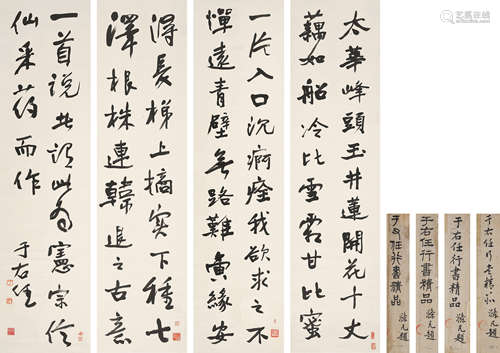 太華峰頭玉井蓮開花十丈
藕如船冷比雪霜甘比蜜
一片入口沉痾痊我欲求之不
憚遠青壁無路難夤緣安
得長梯上摘實下種七
澤根株連韓退之古意
一首説者謂此為憲宗信
仙采葯而作
于右任
于右任行書精品
于右任行書精品
于右任行書精品
于右任行書精品